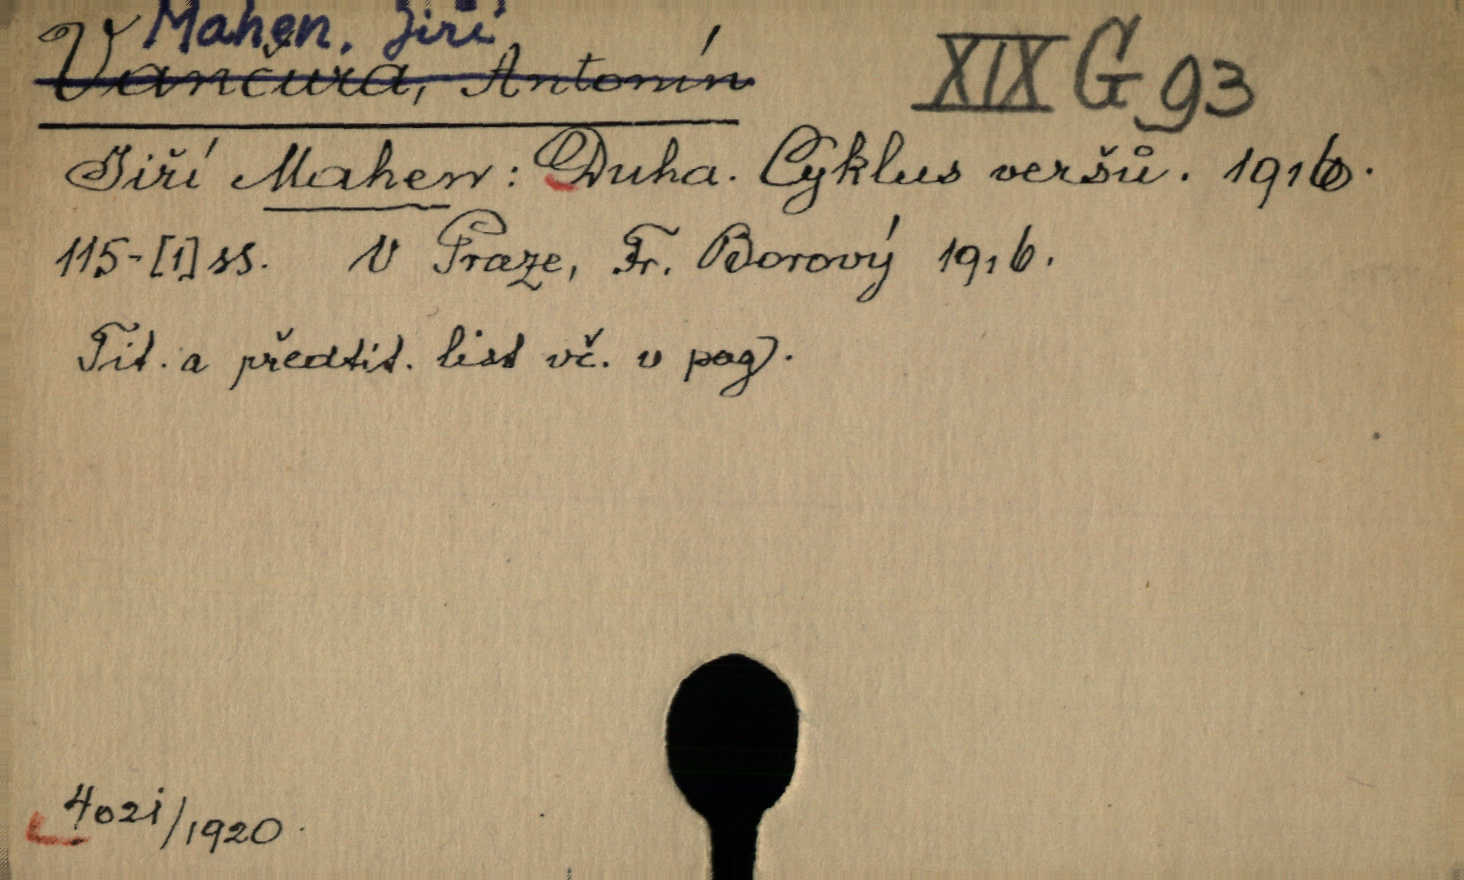 Mahen, Jiří
Vančura, Antonín
XIX G 93
Jiří Mahen: Duha. Cyklus veršů. 1916.
115-[1] ss. V Praze, Fr. Borový 1916.
Tit. a předtit. list vč. v pag.
4021/1920.